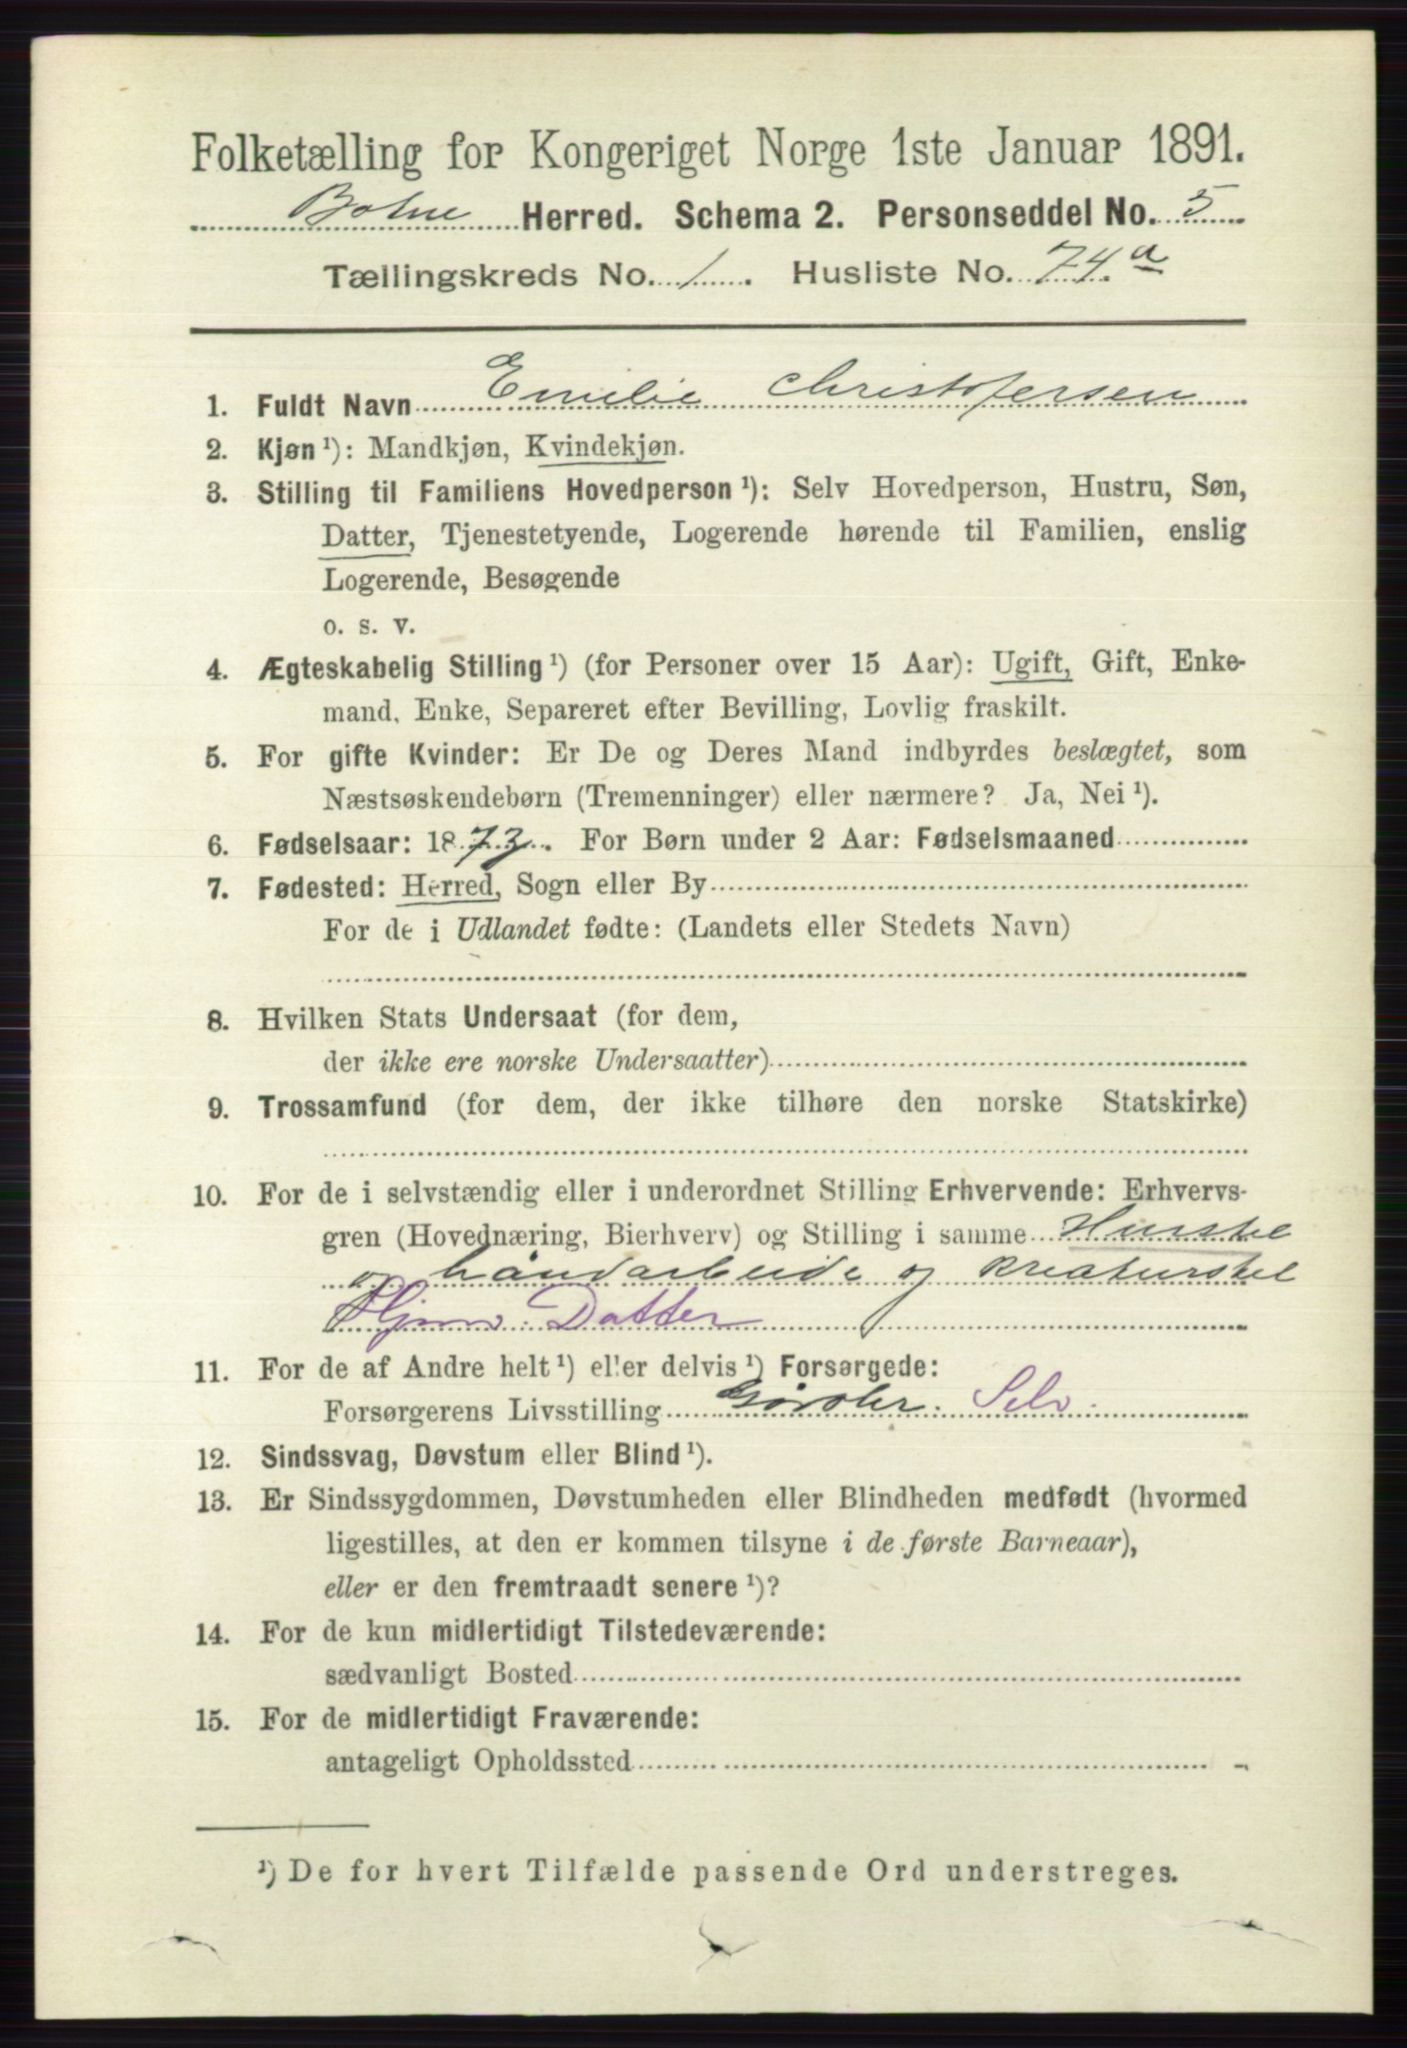 Folketælling for Kongeriget Norge 1ste Januar 1891.
Botne Herred. Schema 2. Personseddel No. 5
Tællingskreds No. 1. Husliste No. 74.a
1. Fuldt Navn Emilie Christofersen
2. Kjøn ¹): Mandkjøn, Kvindekjøn.
3. Stilling til Familiens Hovedperson ¹): Selv Hovedperson, Hustru, Søn,
Datter, Tjenestetyende, Logerende hørende til Familien, enslig
Logerende, Besøgende
o. s. v.
4. Ægteskabelig Stilling ¹) (for Personer over 15 Aar): Ugift, Gift, Enke-
mand, Enke, Separeret efter Bevilling, Lovlig fraskilt.
5. For gifte Kvinder: Er De og Deres Mand indbyrdes beslægtet, som
Næstsøskendebørn (Tremenninger) eller nærmere? Ja, Nei ¹).
6. Fødselsaar: 1873. For Børn under 2 Aar: Fødselsmaaned
7. Fødested: Herred, Sogn eller By
For de i Udlandet fødte: (Landets eller Stedets Navn)
8. Hvilken Stats Undersaat (for dem,
der ikke ere norske Undersaatter)
9. Trossamfund (for dem, der ikke tilhøre den norske Statskirke)
10. For de i selvstændig eller i underordnet Stilling Erhvervende: Erhvervs-
gren (Hovednæring, Bierhverv) og Stilling i samme Husstel
og håndarbeide og Kreaturstel
Hjmv. Datter
11. For de af Andre helt ¹) eller delvis ¹) Forsørgede:
Forsørgerens Livsstilling Selv.
12. Sindssvag, Døvstum eller Blind ¹).
13. Er Sindssygdommen, Døvstumheden eller Blindheden medfødt (hvormed
ligestilles, at den er kommen tilsyne i de første Barneaar),
eller er den fremtraadt senere ¹)?
14. For de kun midlertidigt Tilstedeværende:
sædvanligt Bosted
15. For de midlertidigt Fraværende:
antageligt Opholdssted
¹) De for hvert Tilfælde passende Ord understreges.